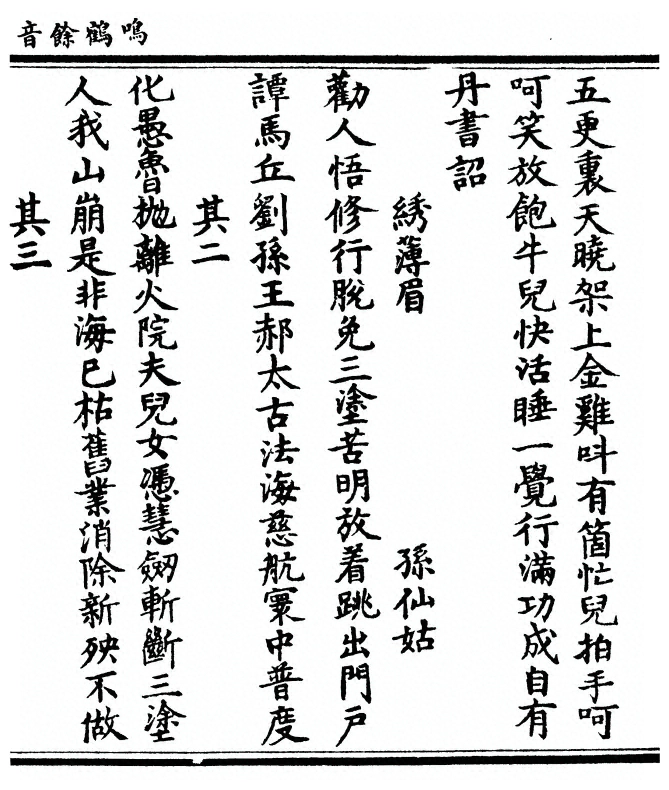 鳴鶴餘音
五更裏天曉架上金雞呌有箇忙兒拍手呵
呵笑放飽牛兒快活睡一覺行滿功成自有
丹書詔
綉薄眉　孫仙姑
勸人悟修行脫免三塗苦明放着跳出門戶
譚馬丘劉孫王郝太古法海慈航寰中普度
其二
化愚魯抛離火院夫兒女憑慧劔斬斷三塗
人我山崩是非海已枯舊業消除新殃不做
其三